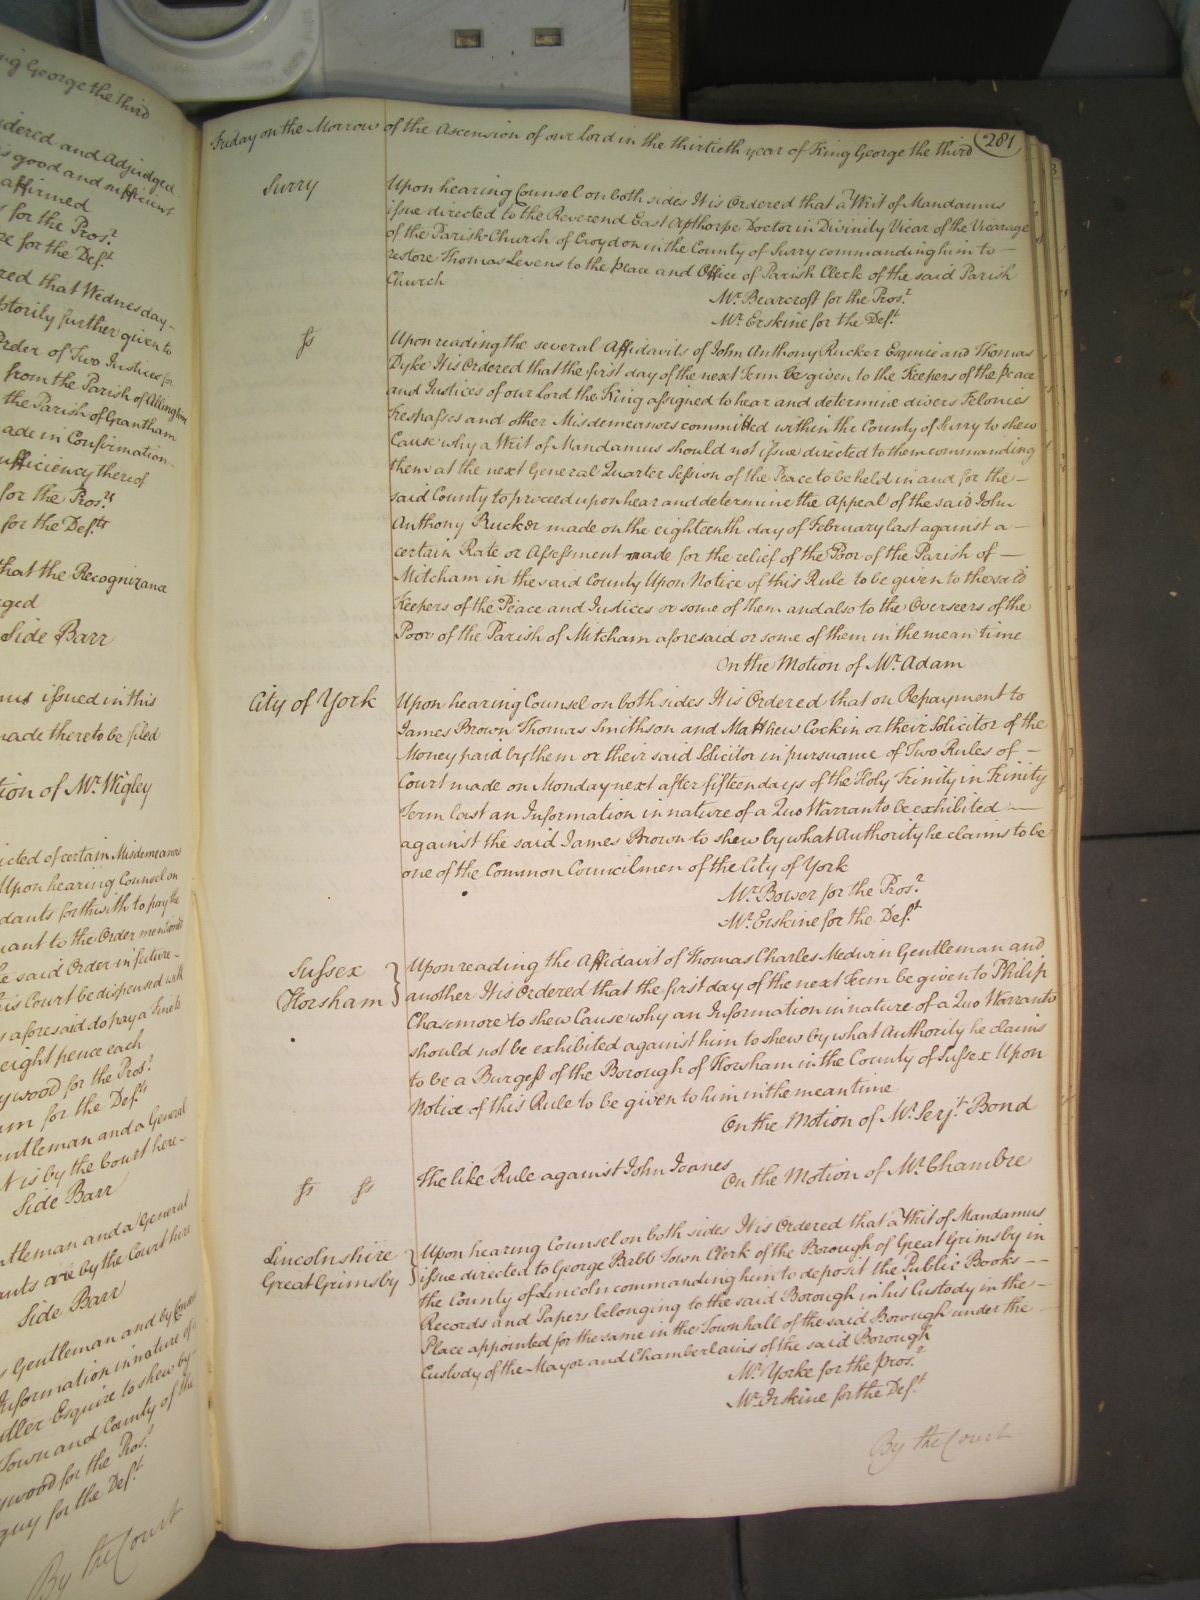 ng George the third
dered and Adjudged
is good and sufficient
affirmed
for the Pros.r
re for the Def.t
red that Wednesday
ptorily further given to
Order of Two Justices for
from the Parish of Allington
the Parish of Grantham
ade in Confirmation
ufficiency thereof
for the Pros.rs
for the Def.ts
that the Recognizance
ged
Side Barr
mus issued in this
made thereto be filed
tion of Mr. Wigley
icted of certain Misdemeanors
Upon hearing Counsel on
dants forthwith to pay the
uant to the Order mentioned
e said Order in future
his Court be dispensed with
s aforesaid do pay a fine
eight pence each
ywood for the Pros.r
am for the Def.ts
entleman and a General
t is by the Court here
Side Barr
ntleman and a General
ants are by the Court here
Side Barr
s Gentleman and by Consent
Information in nature of
utler Esquire to shew by
Town and County of the
ywood for the Pros.r
guy for the Def.t
By the Court
Friday on the Morrow of the Ascension of our Lord in the thirtieth year of King George the third 281
Surry
Upon hearing Counsel on both sides It is Ordered that a Writ of Mandamus
issue directed to the Reverend East Apthorpe Doctor in Divinity Vicar of the Vicarage
of the Parish Church of Croydon in the County of Surry commanding him to —
restore Thomas Levens to the place and Office of Parish Clerk of the said Parish
Church
Mr. Bearcroft for the Pros.r
Mr. Erskine for the Def.t
ss
Upon reading the several Affidavits of John Anthony Rucker Esquire and Thomas
Dyke It is Ordered that the first day of the next Term be given to the Keepers of the peace
and Justices of our Lord the King assigned to hear and determine divers Felonies
Trespasses and other Misdemeanors committed within the County of Surry to shew
Cause why a Writ of Mandamus should not issue directed to them commanding
them at the next General Quarter Session of the Peace to be held in and for the —
said County to proceed upon hear and determine the Appeal of the said John
Anthony Rucker made on the eighteenth day of February last against a —
certain Rate or Assessment made for the relief of the Poor of the Parish of —
Mitcham in the said County Upon Notice of this Rule to be given to the said
Keepers of the Peace and Justices or some of them and also to the Overseers of the
Poor of the Parish of Mitcham aforesaid or some of them in the mean time
On the Motion of Mr. Adam
City of York
Upon hearing Counsel on both sides It is Ordered that on Repayment to
James Brown Thomas Smithson and Matthew Cockin or their Solicitor of the
Money paid by them or their said Solicitor in pursuance of Two Rules of —
Court made on Monday next after fifteen days of the Holy Trinity in Trinity
Term last an Information in nature of a Quo Warranto be exhibited —
against the said James Brown to shew by what Authority he claims to be
one of the Common Councilmen of the City of York
Mr. Bower for the Pros.r
Mr. Erskine for the Def.t
Sussex
Horsham
Upon reading the Affidavit of Thomas Charles Medwin Gentleman and
another It is Ordered that the first day of the next Term be given to Philip
Chasemore to shew Cause why an Information in nature of a Quo Warranto
should not be exhibited against him to shew by what Authority he claims
to be a Burgess of the Borough of Horsham in the County of Sussex Upon
Notice of this Rule to be given to him in the mean time
On the Motion of Mr. Serj.t Bond
ss ss
The like Rule against John Joanes
On the Motion of Mr. Chambre
Lincolnshire
Great Grimsby
Upon hearing Counsel on both sides It is Ordered that a Writ of Mandamus
issue directed to George Babb Town Clerk of the Borough of Great Grimsby in
the County of Lincoln commanding him to deposit the Public Books —
Records and Papers belonging to the said Borough in his Custody in the —
Place appointed for the same in the Townhall of the said Borough under the
Custody of the Mayor and Chamberlains of the said Borough
Mr. Yorke for the pros.r
Mr. Erskine for the Def.t
By the Court